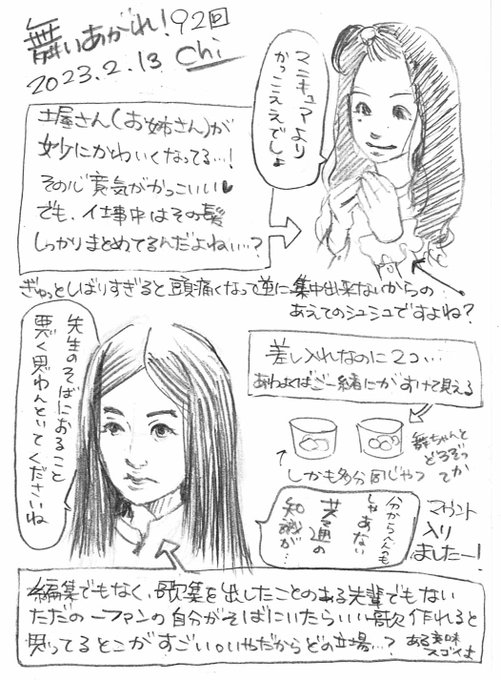 舞いあがれ!92回
2023.2.13 Chi
マニキュアより
かっこええでしょ
土屋さん(お姉さん)が
妙にかわいくなってる…!
その心意気がかっこいい♥
でも、仕事中はその髪
しっかりまとめてるんだよね…?
ぎゅっとしばりすぎると頭痛くなって逆に集中出来ないからの
あえてのシュシュですよね?
先生のそばにおること
悪く思わんといてくださいね
差し入れなのに2コ…
あわよくばご一緒にがすけて見える
舞ちゃんと
どうぞって
か
しかも多分同じやつ
分からへんも
しゃあない
普通の
知識が…
マウント
入り
ましたー!
編集でもなく、歌集を出したことのある先輩でもない
ただの一ファンの自分がそばにいたらいい歌作れると
思ってるとこがすごい。いやだからどの立場…?ある意味
スゴイよ